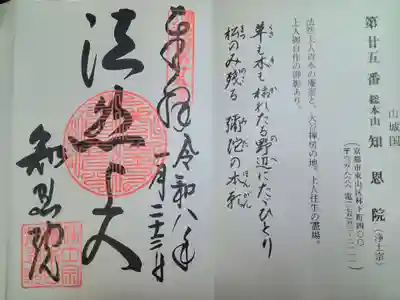 山城国
第廿五番 総本山 知恩院 (浄土宗)
京都市東山区林下町四〇〇
法然上人吉水の庵室と、大谷禅房の地。上人往生の霊場。
上人御自作の御影あり。
草も木も枯れたる野辺にたゞひとり
松のみ残る 弥陀の本願
奉拝 令和八年
一月二十三日
法然上人
知恩院